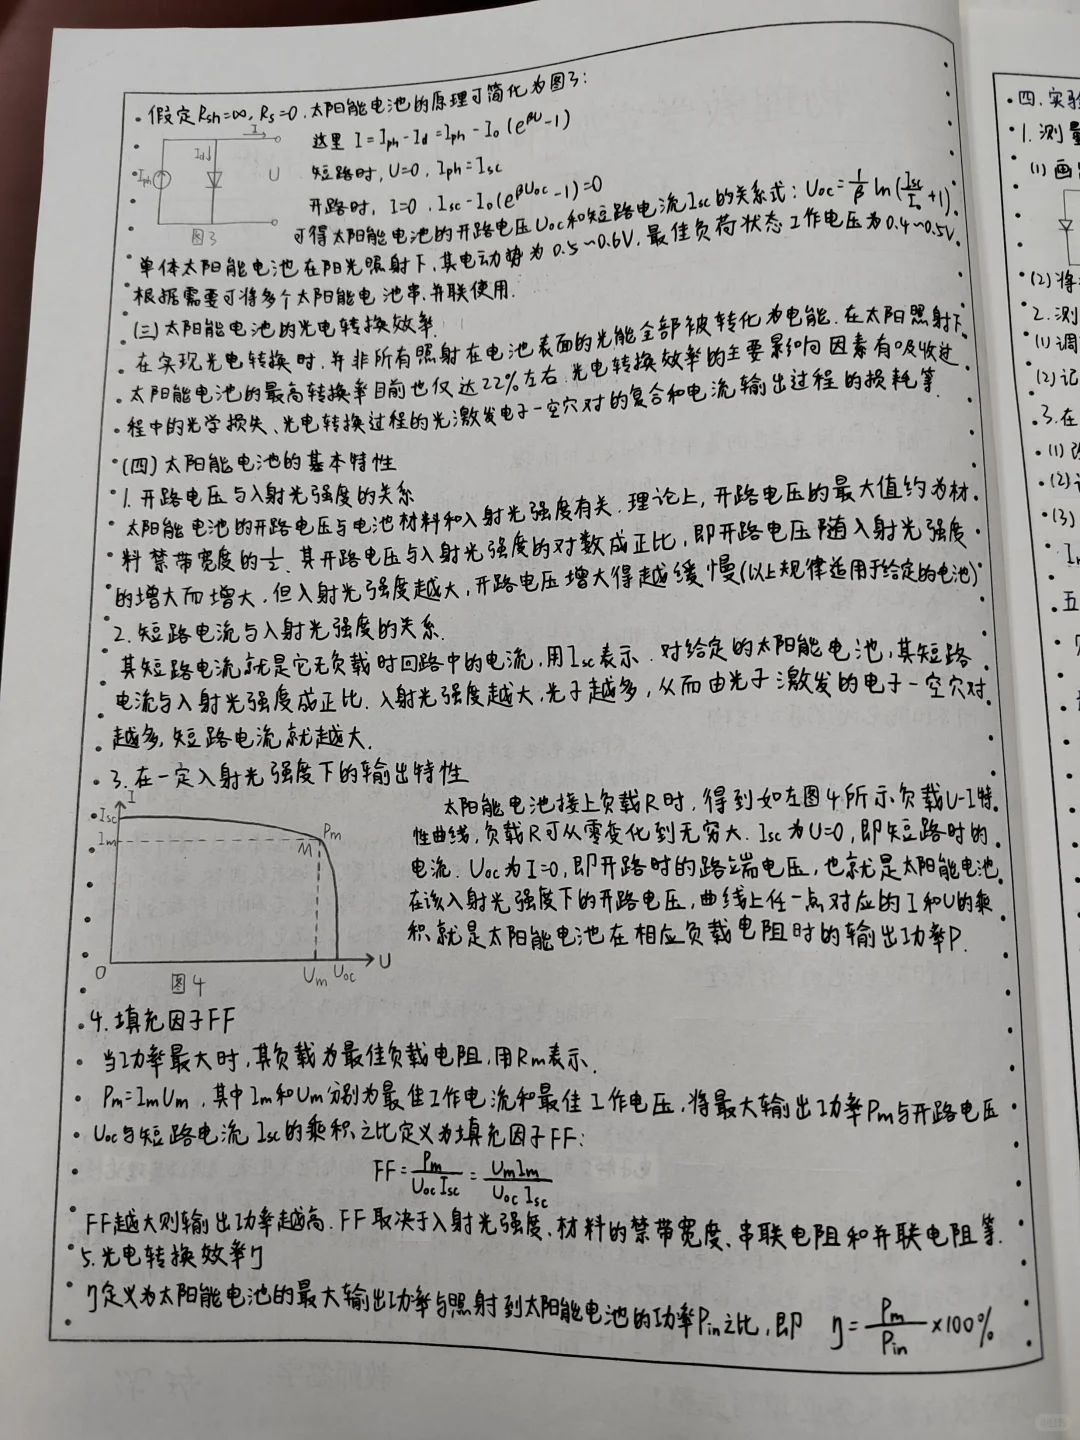 假定Rsh=∞, Rs=0.太阳能电池的原理可简化为图3:
I
Id
Iph
U
图3
这里 I=Iph-Id=Iph-I₀(e^βU-1)
短路时, U=0. Iph=Isc
开路时, I=0. Isc-I₀(e^βUoc-1)=0
可得太阳能电池的开路电压Uoc和短路电流Isc的关系式: Uoc=1/β ln(Isc/I₀+1).
单体太阳能电池在阳光照射下,其电动势为0.5~0.6V.最佳负荷状态工作电压为0.4~0.5V.
根据需要可将多个太阳能电池串.并联使用.
(三)太阳能电池的光电转换效率.
在实现光电转换时.并非所有照射在电池表面的光能全部被转化为电能.在太阳照射下
太阳能电池的最高转换率目前也仅达22%左右.光电转换效率的主要影响因素有吸收过
程中的光学损失、光电转换过程的光激发电子-空穴对的复合和电流输出过程的损耗等.
(四)太阳能电池的基本特性
1.开路电压与入射光强度的关系
太阳能电池的开路电压与电池材料和入射光强度有关.理论上,开路电压的最大值约为材
料禁带宽度的1/2.其开路电压与入射光强度的对数成正比,即开路电压随入射光强度
的增大而增大.但入射光强度越大,开路电压增大得越缓慢(以上规律适用于给定的电池)
2.短路电流与入射光强度的关系.
其短路电流就是它无负载时回路中的电流,用Isc表示.对给定的太阳能电池,其短路
电流与入射光强度成正比.入射光强度越大,光子越多,从而由光子激发的电子-空穴对
越多,短路电流就越大.
3.在一定入射光强度下的输出特性
I
Isc
Im
Pm
M
O
Um
Uoc
U
图4
太阳能电池接上负载R时,得到如左图4所示负载U-I特
性曲线,负载R可从零变化到无穷大.Isc为U=0,即短路时的
电流.Uoc为I=0,即开路时的路端电压,也就是太阳能电池
在该入射光强度下的开路电压,曲线上任一点对应的I和U的乘
积就是太阳能电池在相应负载电阻时的输出功率P.
4.填充因子FF
当功率最大时,其负载为最佳负载电阻,用Rm表示.
Pm=ImUm,其中Im和Um分别为最佳工作电流和最佳工作电压,将最大输出功率Pm与开路电压
Uoc与短路电流Isc的乘积之比定义为填充因子FF:
FF=Pm/UocIsc=UmIm/UocIsc
FF越大则输出功率越高.FF取决于入射光强度、材料的禁带宽度、串联电阻和并联电阻等.
5.光电转换效率η
η定义为太阳能电池的最大输出功率与照射到太阳能电池的功率Pin之比,即 η=Pm/Pin×100%
四.实验
1.测量
(1)画
(2)将
2.测
(1)调
(2)记
3.在
(1)改
(2)
(3)
五